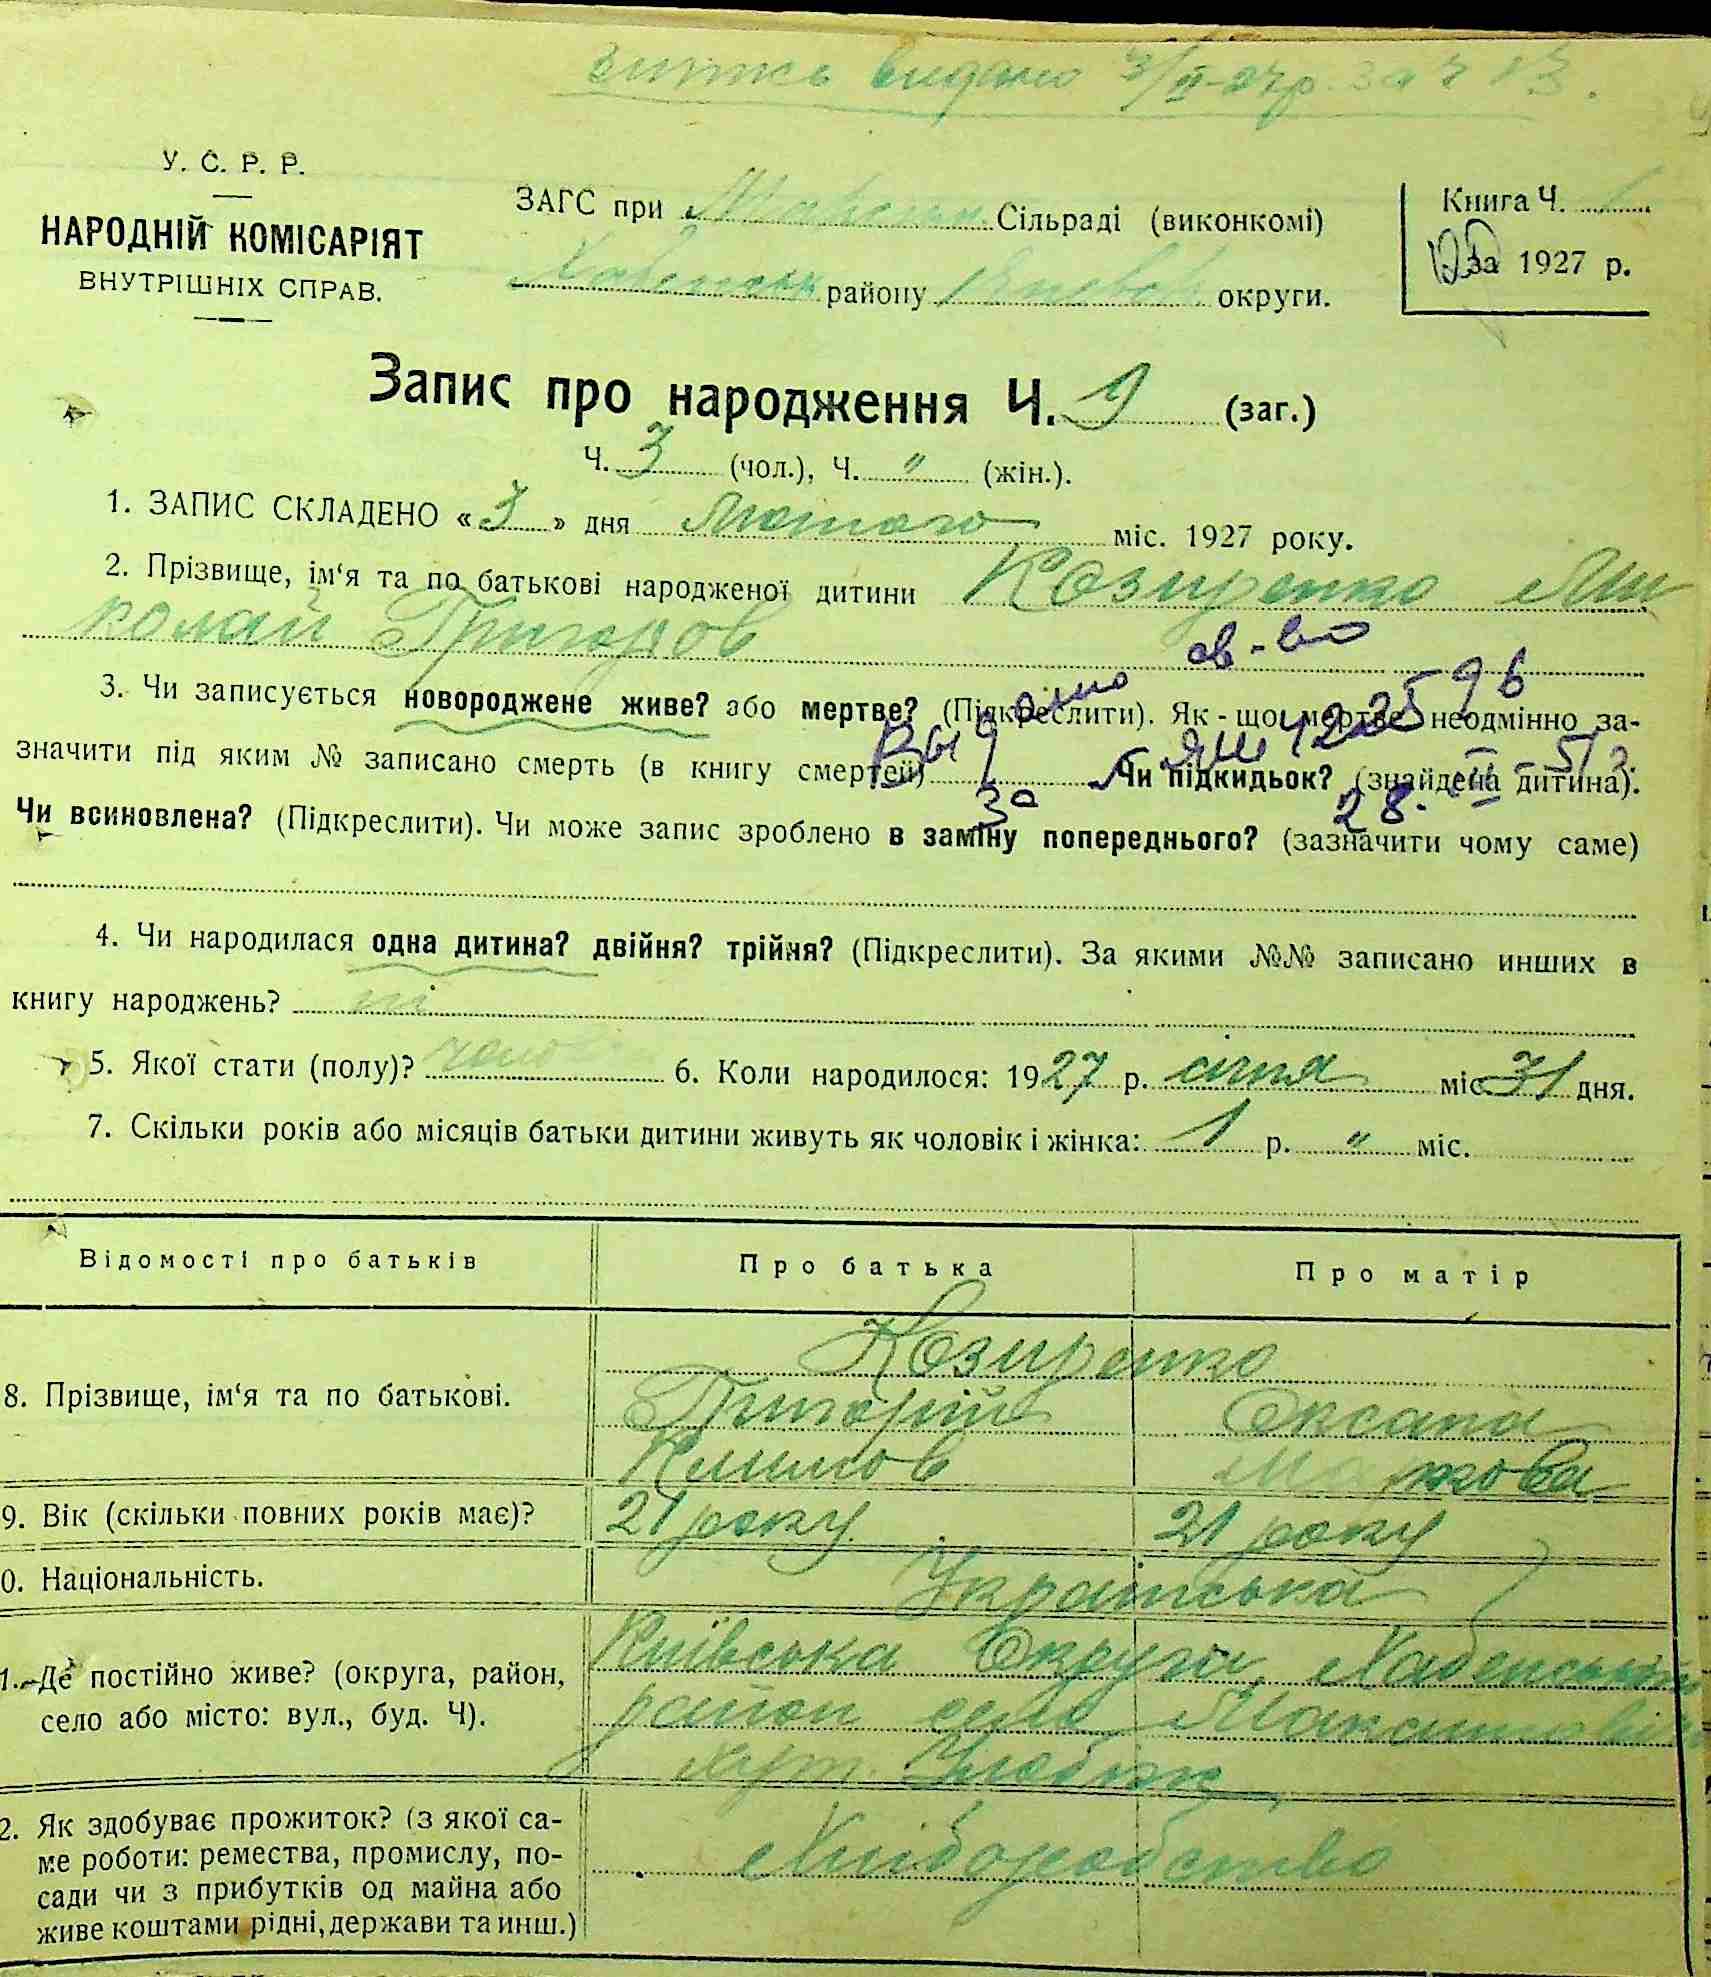 видано 3/II-27р. за Ч 13.
У. С. Р. Р.
НАРОДНІЙ КОМІСАРІЯТ
ВНУТРІШНІХ СПРАВ.
ЗАГС при Сільраді (виконкомі)
Хабенськ району Київськ округи.
Книга Ч.
за 1927 р.
Запис про народження Ч. 9 (заг.)
Ч. 3 (чол.), Ч. " (жін.).
1. ЗАПИС СКЛАДЕНО «3» дня Лютого міс. 1927 року.
2. Прізвище, ім'я та по батькові народженої дитини Козиренко Ми
колай Григоров
св-во
3. Чи записується новороджене живе? або мертве? (Підкреслити). Як-що мертве неодмінно за-
Выдано ЯШ 422596
значити під яким № записано смерть (в книгу смертей) Чи підкидьок? (знайдена дитина).
за 28.
Чи всиновлена? (Підкреслити). Чи може запис зроблено в заміну попереднього? (зазначити чому саме)
4. Чи народилася одна дитина? двійня? трійня? (Підкреслити). За якими №№ записано инших в
книгу народжень? ні
5. Якої стати (полу)? чоло 6. Коли народилося: 1927 р. січня міс 31 дня.
7. Скільки років або місяців батьки дитини живуть як чоловік і жінка: 1 р. " міс.
Відомості про батьків Про батька Про матір
Козиренко
8. Прізвище, ім'я та по батькові. Григорій Оксана
Климов Маркова
9. Вік (скільки повних років має)? 21 року 21 року
0. Національність. Українська
Київська Округа Хабенський
1. Де постійно живе? (округа, район,
село або місто: вул., буд. Ч). район село Максимович
хут.
2. Як здобуває прожиток? (з якої са-
ме роботи: ремества, промислу, по-
сади чи з прибутків од майна або
живе коштами рідні, держави та инш.)
Хліборобство